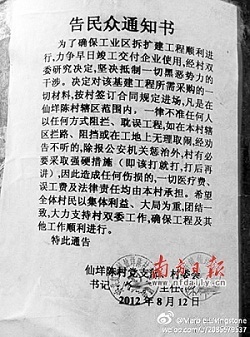 告民众通知书
为了确保工业区拆扩建工程顺利进
行，力争早日竣工交付企业使用，经村
双委研究决定，坚决抵制一切黑恶势力的
干涉。决定对该基建工程所需采购的一
切材料，按村签订合同规定进场，凡是在
仙垟陈村辖区范围内，一律不准任何人
以任何方式阻拦、耽误工程，如在本村辖
区拦路、阻挡或在工地上无理取闹，经劝
告不听的，除报公机关惩治外，村有必
要采取强硬措施（即该打就打，打后再
讲），因此造成任何伤损的，一切医疗费、
误工费及法律责任均由本村承担。希望
全体村民以集体利益、大局为重，团结一
致，大力支持村双委工作，确保工程及其
他工作顺利进行。
特此通告
仙垟陈村党支部 村委
书记 主任
2012年8月12日
南方都市报
www.nfdaily.cn